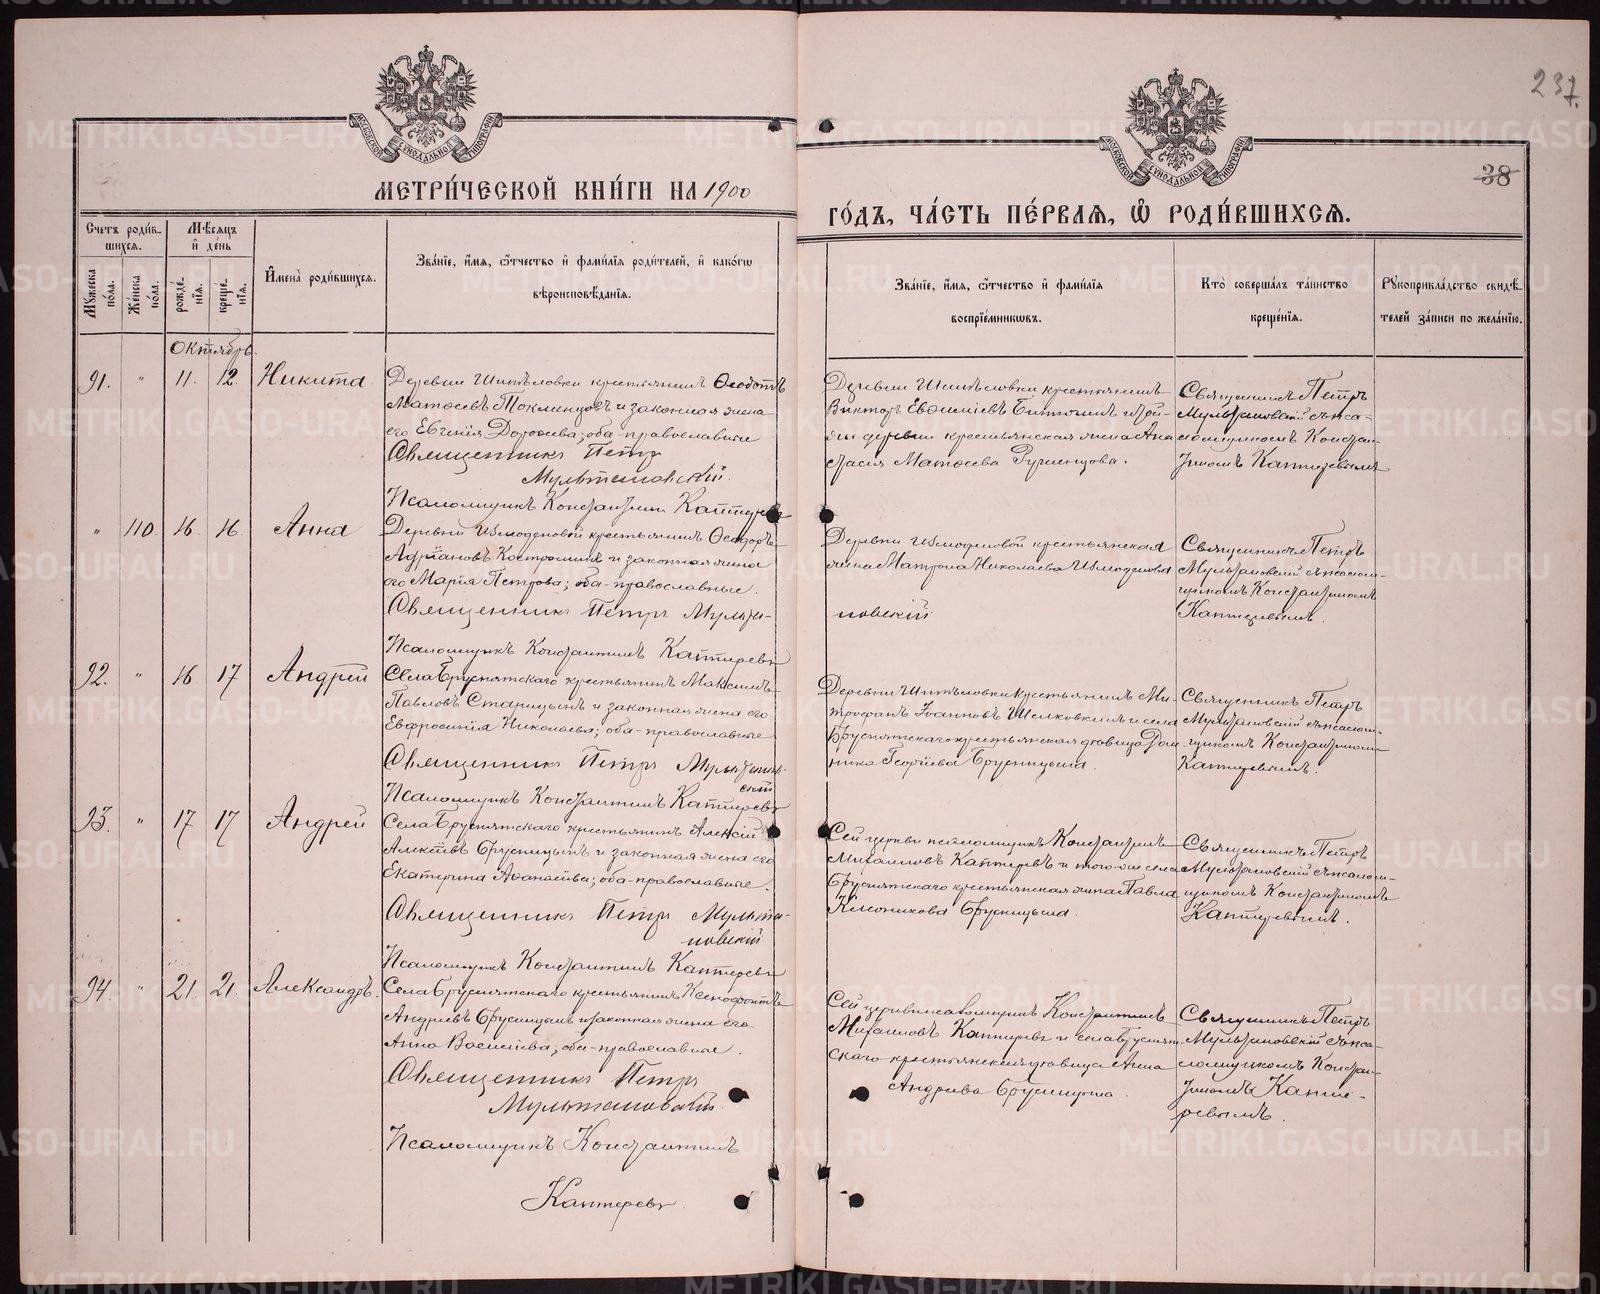 237.
38
МОСКОВСКОЙ СѴНОДАЛЬНОЙ ТИПОГРАФИИ
МЕТРИ́ЧЕСКОЙ КНИ́ГИ НА 1900
ГО́ДЪ, ЧА́СТЬ ПЕ́РВАЯ, Ѡ҆ РОДИ́ВШИХСЯ.
Счетъ роди́в-
шихся.
Мѣ́сяцъ
и҆ де́нь
Мꙋ́жеска по́ла.
Же́нска по́ла.
рожде́нїя.
креще́нїя.
И҆мена̀ роди́вшихся.
Зва́нїе, и҆́мя, ѻ҆́тчество и҆ фами́лїя роди́телей, и҆ како́гѡ
вѣроисповѣ́данїя.
Зва́нїе, и҆́мя, ѻ҆́тчество и҆ фами́лїя
воспрїе́мникѡвъ.
Кто̀ соверша́лъ та́инство
креще́нїя.
Рꙋкоприкла́дство свидѣ́-
телей за́писи по жела́нїю.
Октябрь.
91. " 11. 12. Никита
Деревни Шипѣловки крестьянинъ Ѳеодотъ
Матѳеевъ Токменцовъ и законная жена
его Евгенія Дороѳева; оба-православные
Священникъ Петръ
Мультановскій.
Псаломщикъ Константинъ Каптеревъ
Деревни Шипѣловки крестьянинъ
Викторъ Евѳиміевъ и той-
же деревни крестьянская жена Ана
стасія Матѳеева
Священникъ Петръ
Мультановскій съ пса-
ломщикомъ Констан-
тиномъ Каптеревымъ
" 110. 16. 16. Анна
Деревни Измоденовой крестьянинъ Ѳеодоръ
Адріановъ Костроминъ и законная жена
его Марія Петрова; оба-православные.
Священникъ Петръ Мульта-
новскій
Псаломщикъ Константинъ Каптеревъ
Деревни Измоденовой крестьянская
жена Матрона Николаева Измоденова
Священникъ Петръ
Мультановскій съ псалом-
щикомъ Константиномъ
Каптеревымъ.
92. " 16. 17 Андрей
Села Бруснятскаго крестьянинъ Максимъ
Павловъ Старицынъ и законная жена его
Евфросинія Николаева; оба-православные
Священникъ Петръ Мультанов-
скій
Псаломщикъ Константинъ Каптеревъ
Деревни Шипѣловки крестьянинъ Ми-
трофанъ Іоанновъ Шелковкинъ и села
Бруснятскаго крестьянская дѣвица Дом-
ника Георгіева Брусницына.
Священникъ Петръ
Мультановскій съ псалом-
щикомъ Константиномъ
Каптеревымъ.
93. " 17 17 Андрей
Села Бруснятскаго крестьянинъ Алексій
Алексѣевъ Брусницынъ и законная жена его
Екатерина Аѳанасіева; оба-православные.
Священникъ Петръ Мульта-
новскій
Псаломщикъ Константинъ Каптеревъ
Сей церкви псаломщикъ Константинъ
Михаиловъ Каптеревъ и того-же села
Бруснятскаго крестьянская жена Павла
Клеоникова Брусницына.
Священникъ Петръ
Мультановскій съ псалом-
щикомъ Константиномъ
Каптеревымъ.
94. " 21. 21. Александръ.
Села Бруснятскаго крестьянинъ Ксенофонтъ
Андреевъ Брусницынъ и законная жена его
Анна Васильева; оба-православные.
Священникъ Петръ
Мультановскій.
Псаломщикъ Константинъ
Каптеревъ
Сей церкви псаломщикъ Константинъ
Михаиловъ Каптеревъ и села Бруснят-
скаго крестьянская дѣвица Анна
Андреева Брусницына.
Священникъ Петръ
Мультановскій съ пса-
ломщикомъ Констан-
тиномъ Капте-
ревымъ.
METRIKI.GASO-URAL.RU